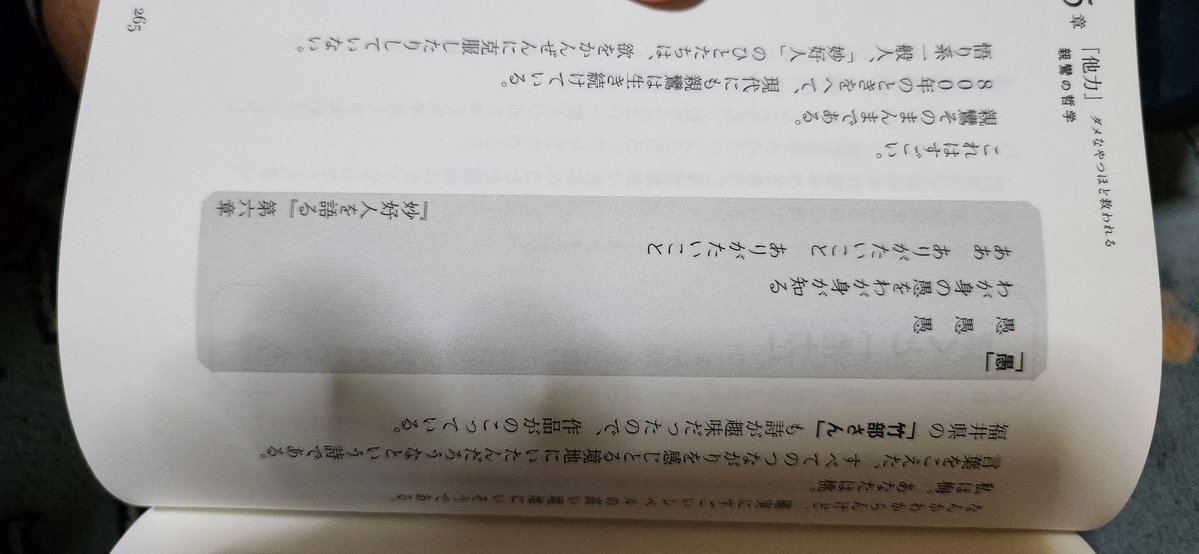 なんかわからんけど、確実にすごいレベルの高い境地にいそうである。
私は梅。あなたは桃。
言葉をこえた、すべてのつながりを感じとる境地にいたんだろうなという詩である。
福井県の「竹部さん」も詩が趣味だったので、作品がのこっている。
「愚」
愚　愚　愚
わが身の愚をわが身が知る
ああ　ありがたいこと　ありがたいこと
『妙好人を語る』第六章
これはすごい。
親鸞そのまんまである。
800年のときをへて、現代にも親鸞は生き続けている。
悟り系一般人、「妙好人」のひとたちは、欲をかんぜんに克服したりしていない。
5章　「他力」　ダメなやつほど救われる
親鸞の哲学
265